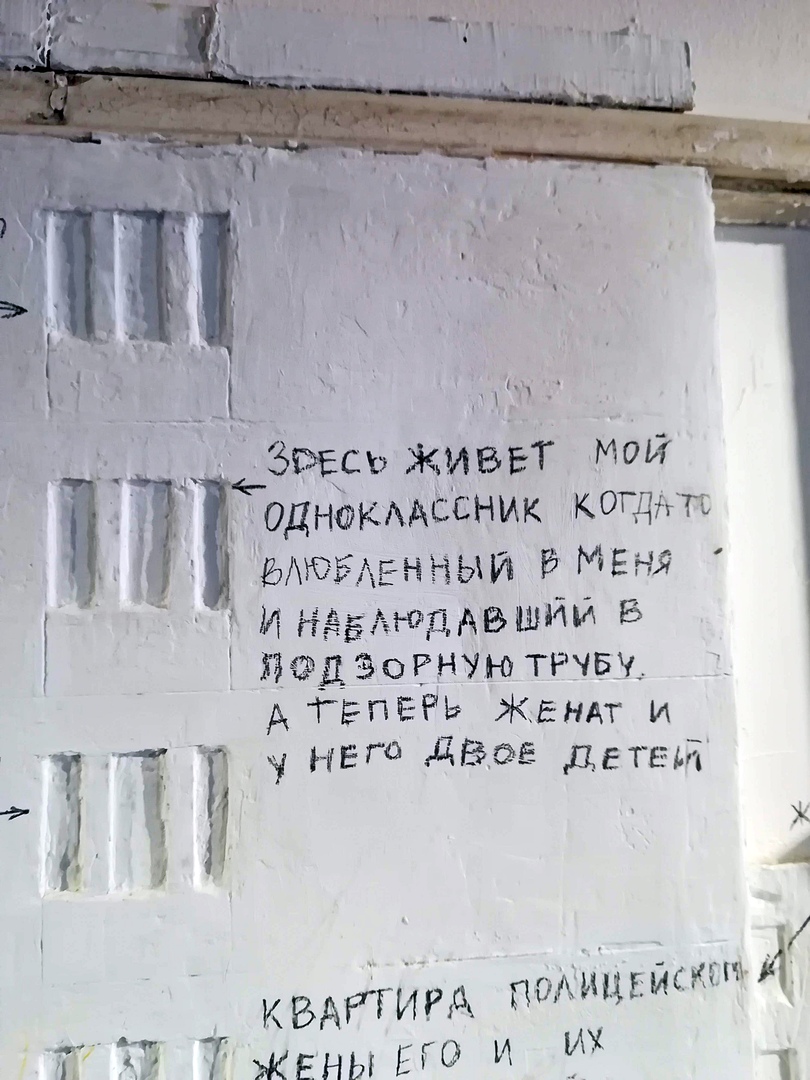 ЗДЕСЬ ЖИВЕТ МОЙ
ОДНОКЛАССНИК КОГДАТО
ВЛЮБЛЕННЫЙ В МЕНЯ
И НАБЛЮДАВШИЙ В
ПОДЗОРНУЮ ТРУБУ.
А ТЕПЕРЬ ЖЕНАТ И
У НЕГО ДВОЕ ДЕТЕЙ
КВАРТИРА ПОЛИЦЕЙСКОГО
ЖЕНЫ ЕГО И ИХ